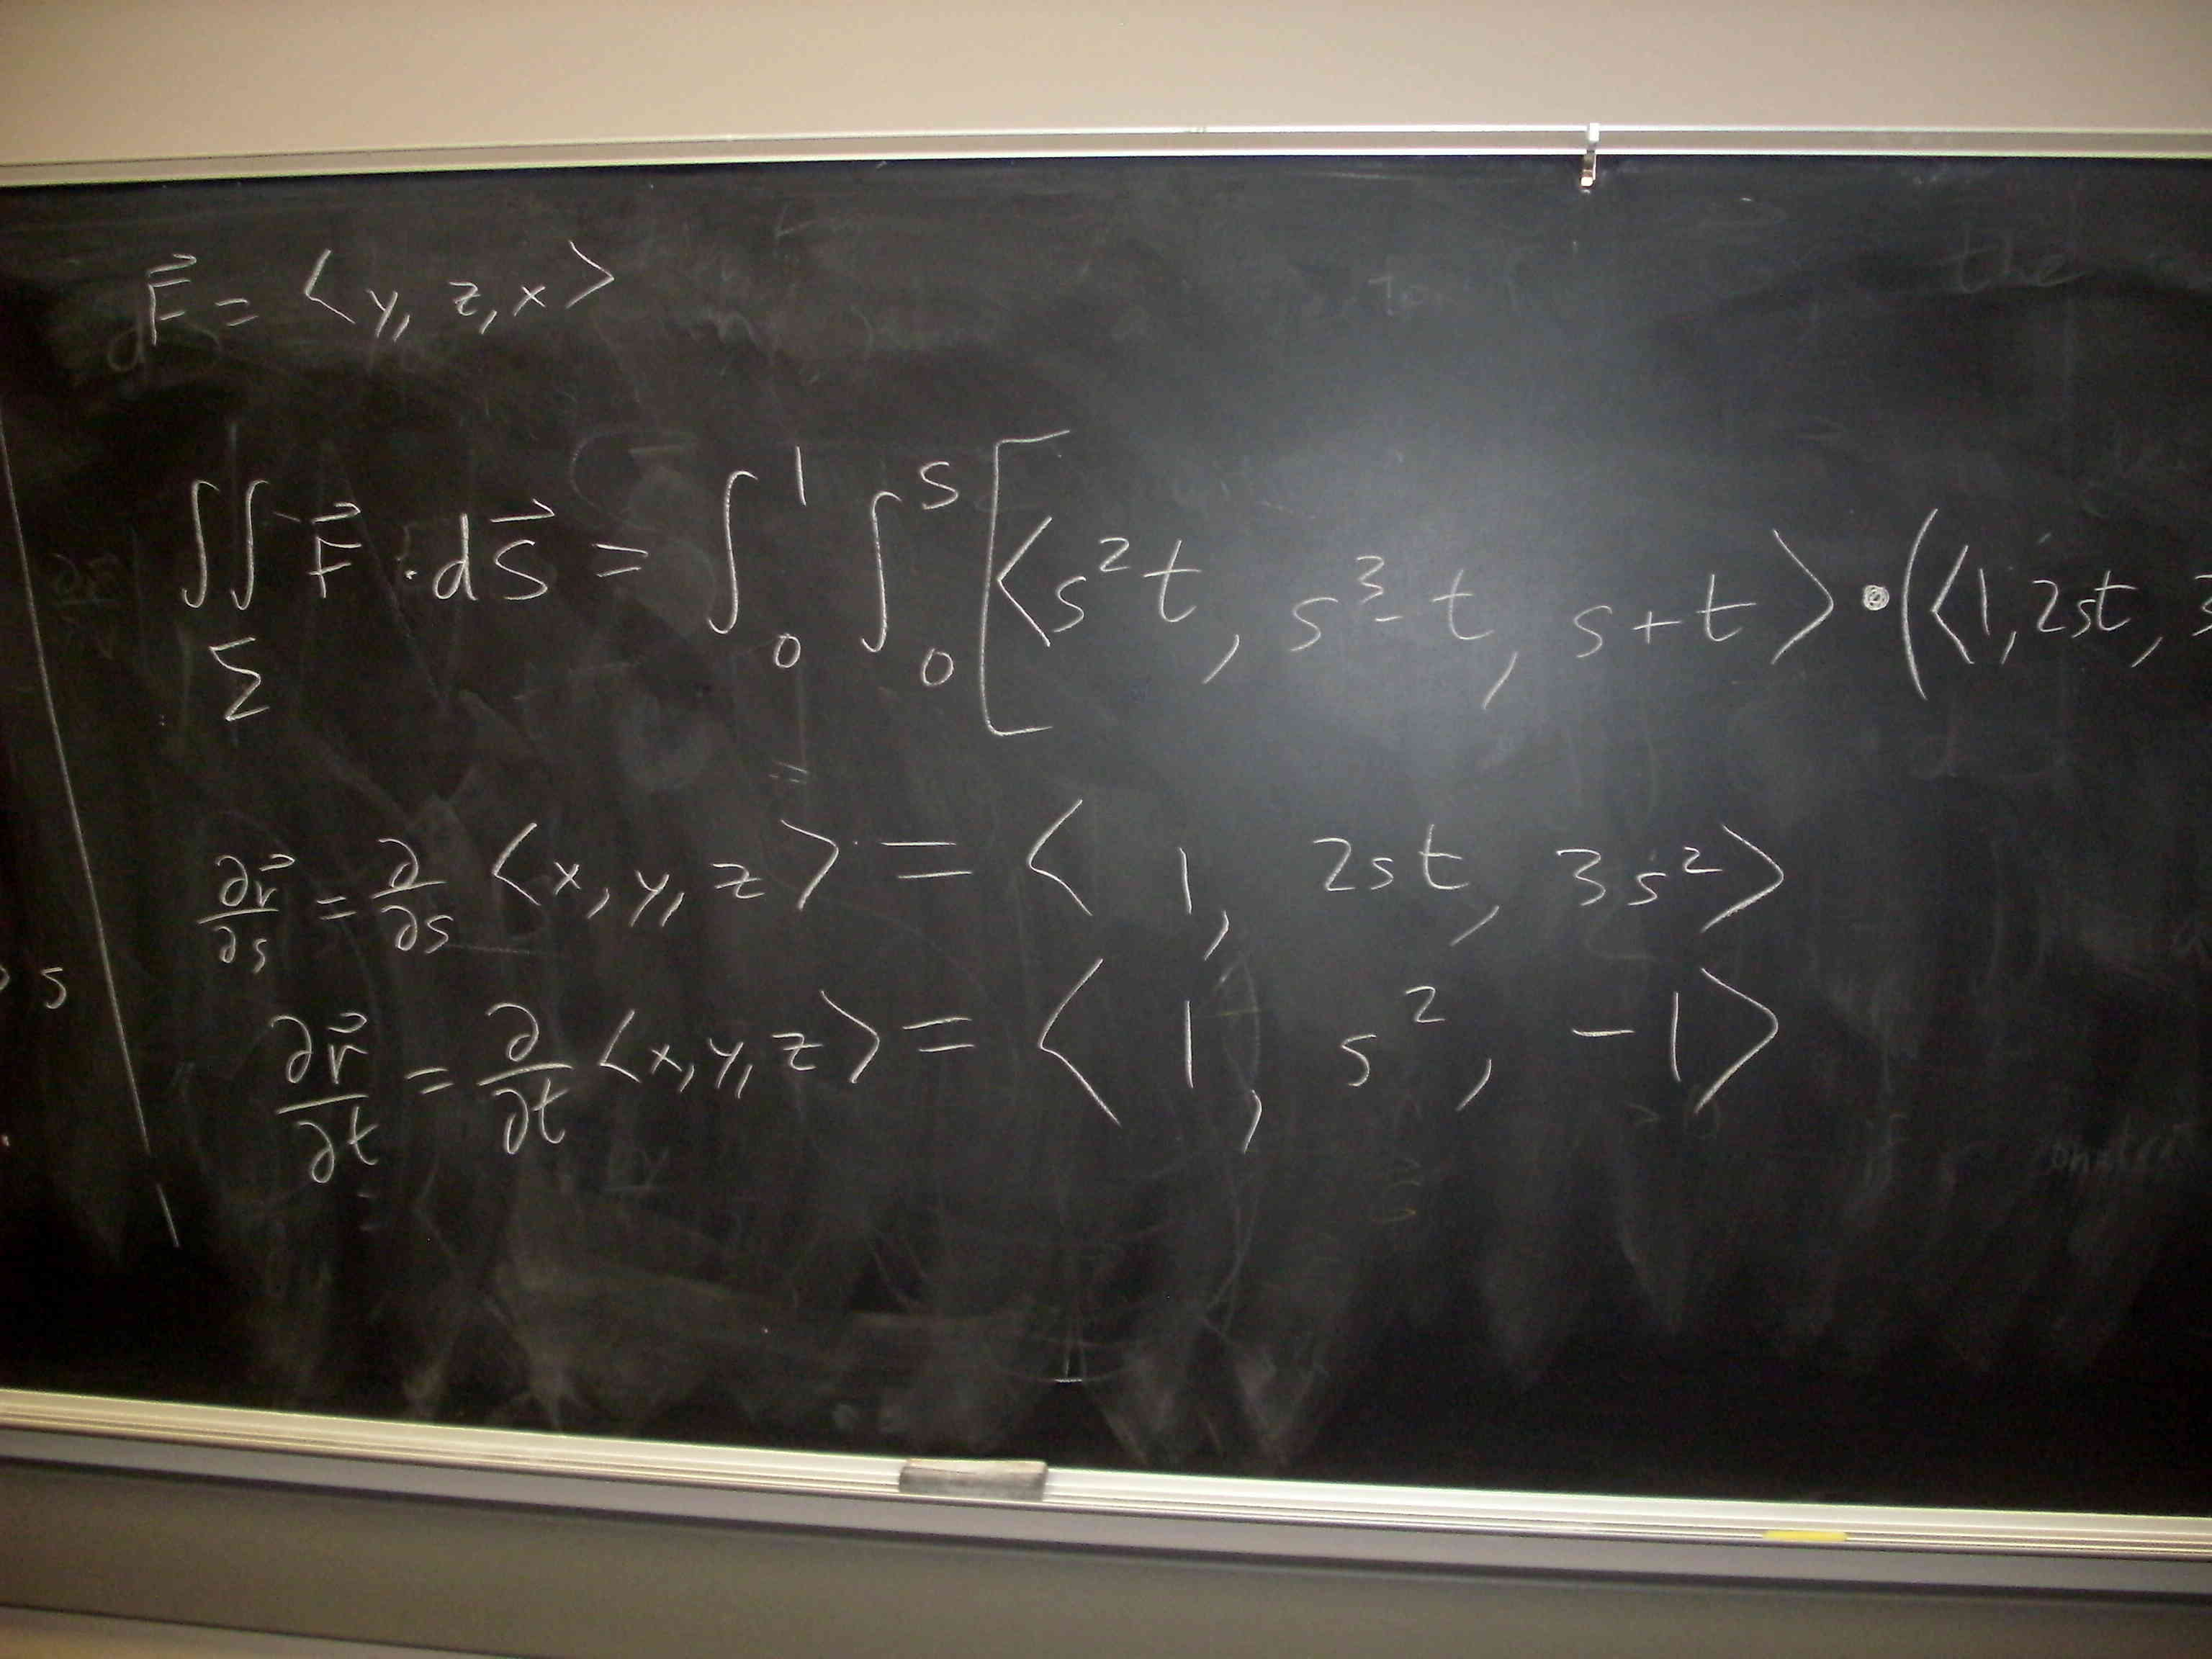 F⃗ = ⟨y, z, x⟩
∬_Σ F⃗ · dS⃗ = ∫₀¹ ∫₀ˢ [⟨s²t, s³-t, s+t⟩ • (⟨1, 2st, 3
∂r⃗/∂s = ∂/∂s ⟨x, y, z⟩ = ⟨1, 2st, 3s²⟩
s
∂r⃗/∂t = ∂/∂t ⟨x, y, z⟩ = ⟨1, s², -1⟩